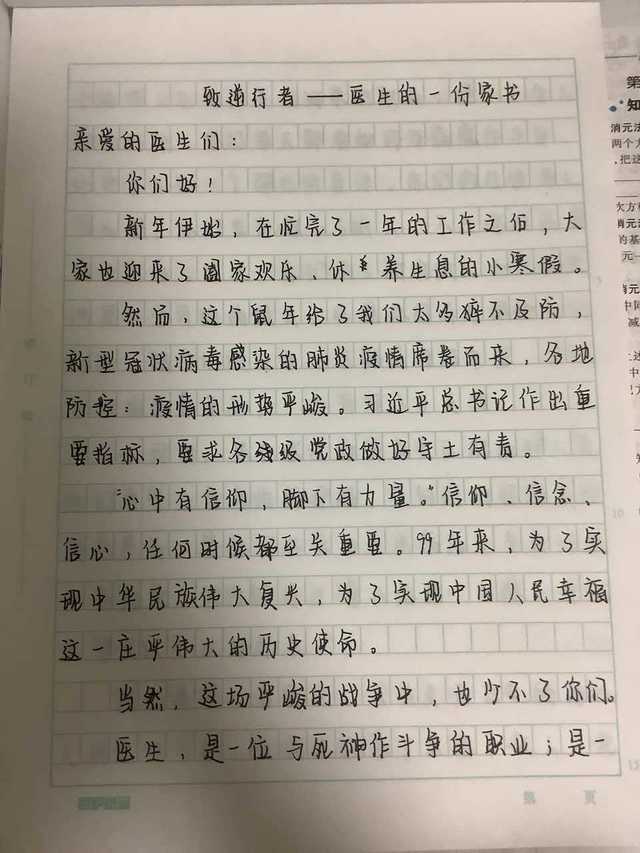 致逆行者——医生的一份家书
亲爱的医生们：
你们好！
新年伊始，在忙完了一年的工作之后，大
家也迎来了阖家欢乐、休养生息的小寒假。
然而，这个鼠年给了我们太多猝不及防，
新型冠状病毒感染的肺炎疫情席卷而来，各地
防控：疫情的形势严峻。习近平总书记作出重
要指标，要求各级党政做好守土有责。
“心中有信仰，脚下有力量。”信仰、信念、
信心，任何时候都至关重要。99年来，为了实
现中华民族伟大复兴，为了实现中国人民幸福
这一庄严伟大的历史使命。
当然，这场严峻的战争中，也少不了你们。
医生，是一位与死神作斗争的职业；是一
第
页
第
知
消元法
两个方
，把这
次方程
消元法
的基
元一
消元
中同
减